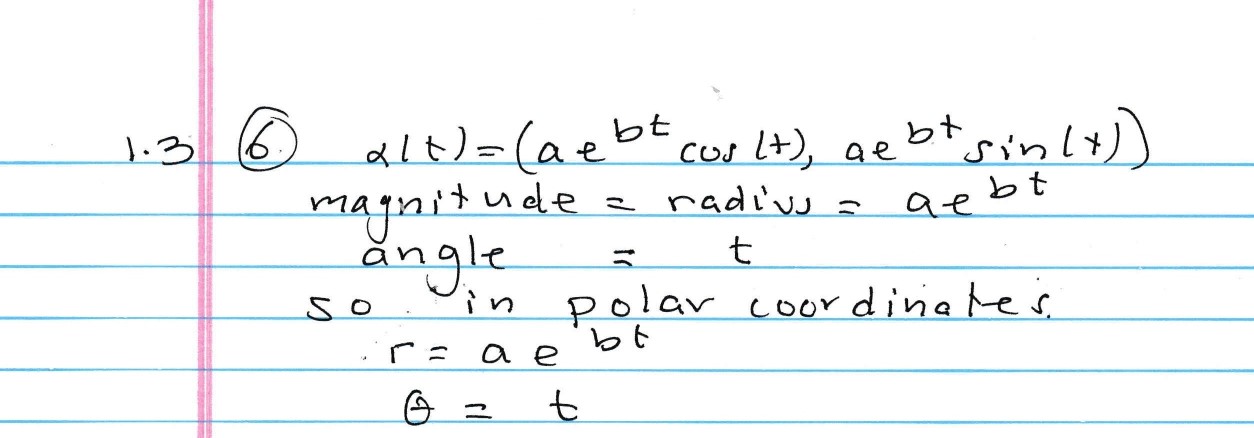 1.3 ⑥ α(t)=(ae^bt cos(t), ae^bt sin(t))
magnitude = radius = ae^bt
angle = t
so in polar coordinates.
r = ae^bt
θ = t